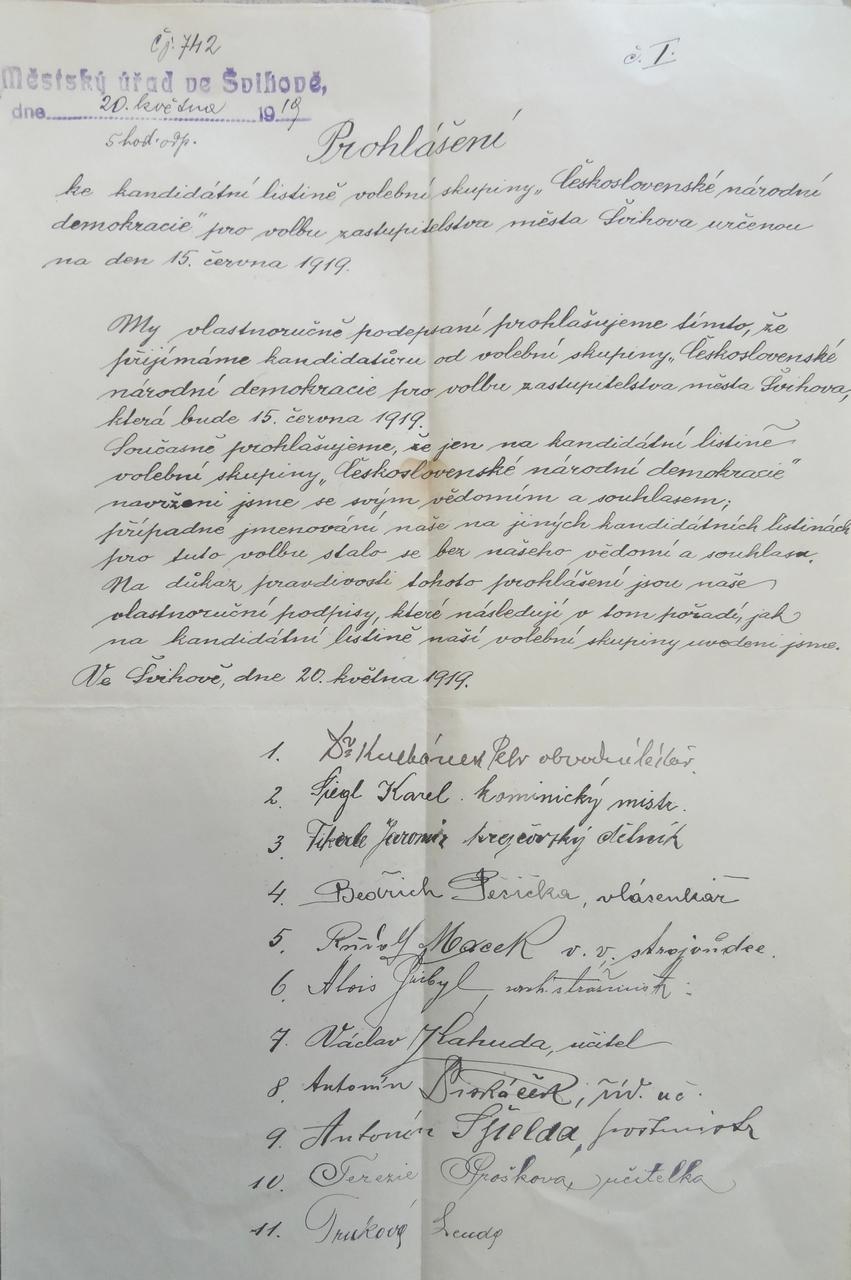 čj. 742
č. I.
Městský úřad ve Švihově,
dne 20. května 1919
5 hod. odp.
Prohlášení
ke kandidátní listině volební skupiny „Československé národní
demokracie" pro volbu zastupitelstva města Švihova určenou
na den 15. června 1919.
My vlastnoručně podepsaní prohlašujeme tímto, že
přijímáme kandidatůru od volební skupiny „Československé
národní demokracie pro volbu zastupitelstva města Švihova,
která bude 15. června 1919.
Současně prohlašujeme, že jen na kandidátní listině
volební skupiny „Československé národní demokracie"
navrženi jsme se svým vědomím a souhlasem;
případné jmenování naše na jiných kandidátních listinách
pro tuto volbu stalo se bez našeho vědomí a souhlasu.
Na důkaz pravdivosti tohoto prohlášení jsou naše
vlastnoruční podpisy, které následují v tom pořadí, jak
na kandidátní listině naší volební skupiny uvedeni jsme.
Ve Švihově, dne 20. května 1919.
1. Dr Petr obvodní lékař.
2. Karel kominický mistr.
3. Jaromír krejčovský dělník
4. Bedřich Pešička, vlásenkář
5. Rudolf Macek v. v. strojvůdce.
6. Alois
7. Václav Kahuda, učitel
8. Antonín říd. uč.
9. Antonín poštmistr
10. Terezie Proškova, učitelka
11.